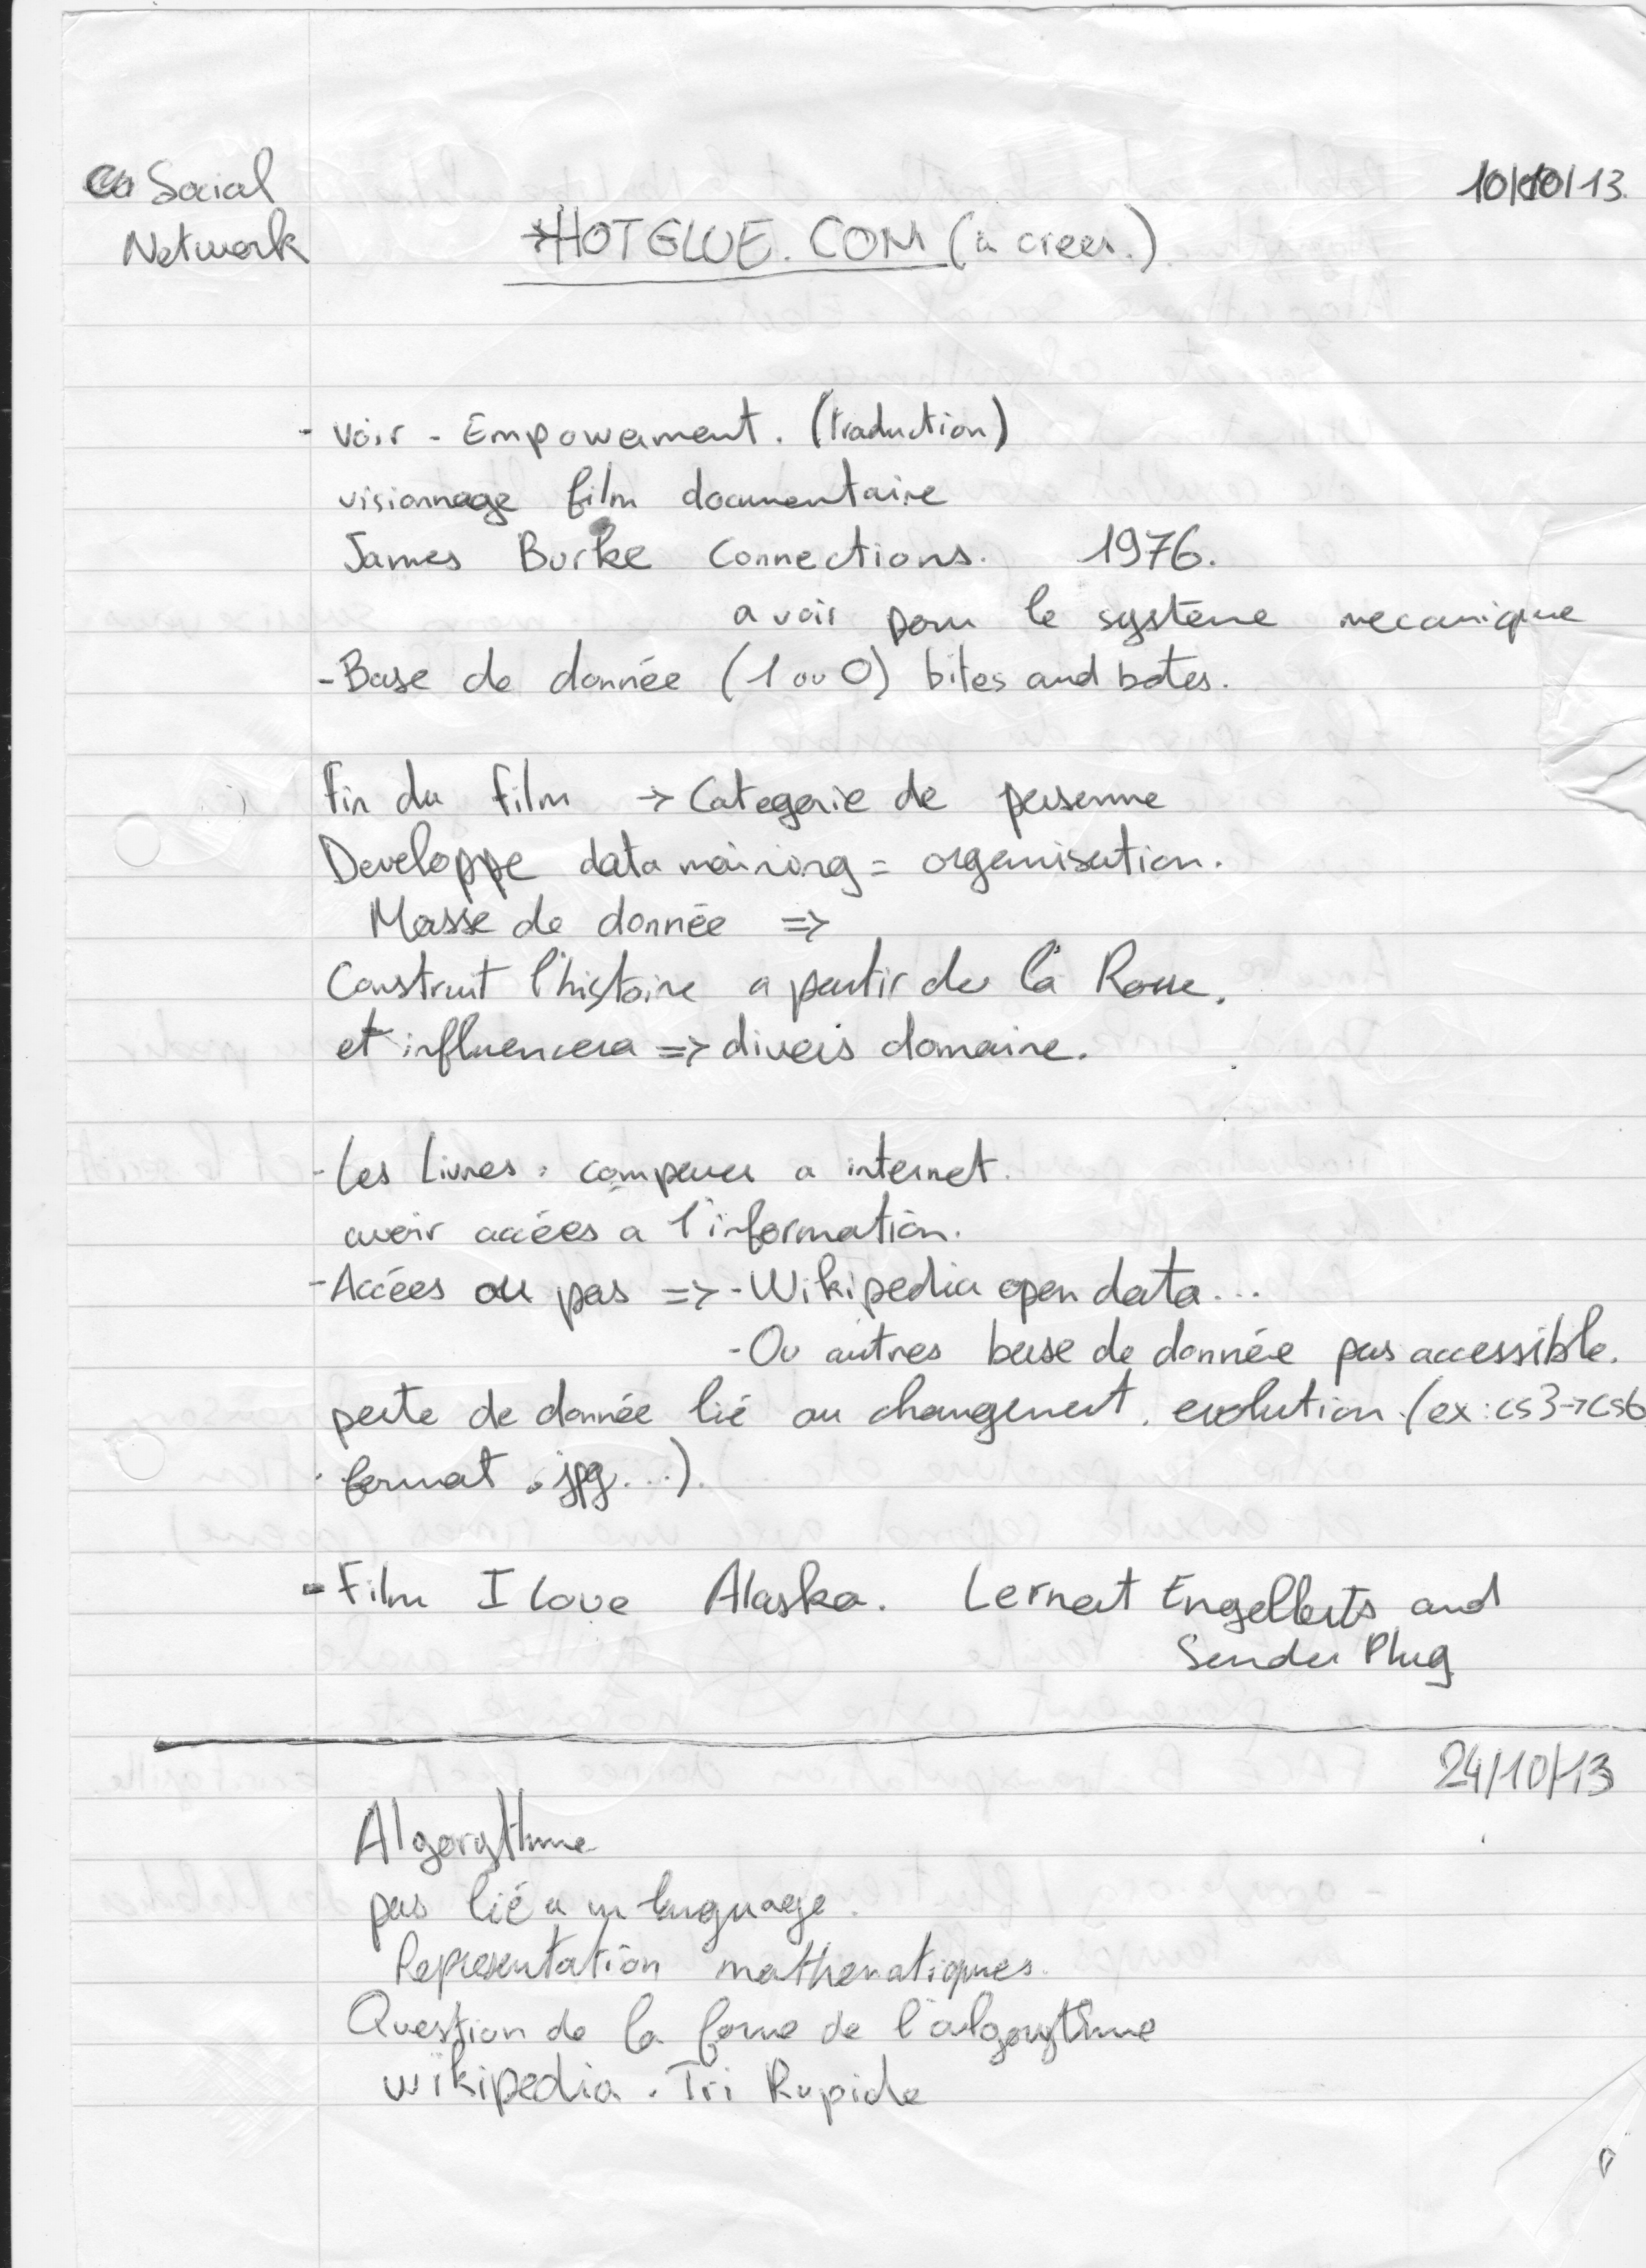 Social
Network
10/10/13.
→HOTGLUE.COM (à creer.)
- voir - Empowerment. (traduction)
visionnage film documentaire
James Burke Connections. 1976.
a voir pour le système mecanique
- Base de donnée (1 ou 0) bites and botes.
Fin du film → Categorie de personne
Developpe data maining = organisation.
Masse de donnée =>
Construit l'histoire a partir de la Roue.
et influencera => divers domaine.
- Les Livres : comparer a internet.
avoir accées a l'information.
- Accées ou pas => - Wikipedia open data...
- Ou autres base de donnée pas accessible.
perte de donnée lié au changement, evolution (ex : cs3→cs6
format .jpg...).
- Film I love Alaska. Lernert Engelberts and
Sander Plug
24/10/13
Algorythme
pas lié a un language.
Representation mathematiques.
Question de la forme de l'algorythme
wikipedia. Tri Rapide